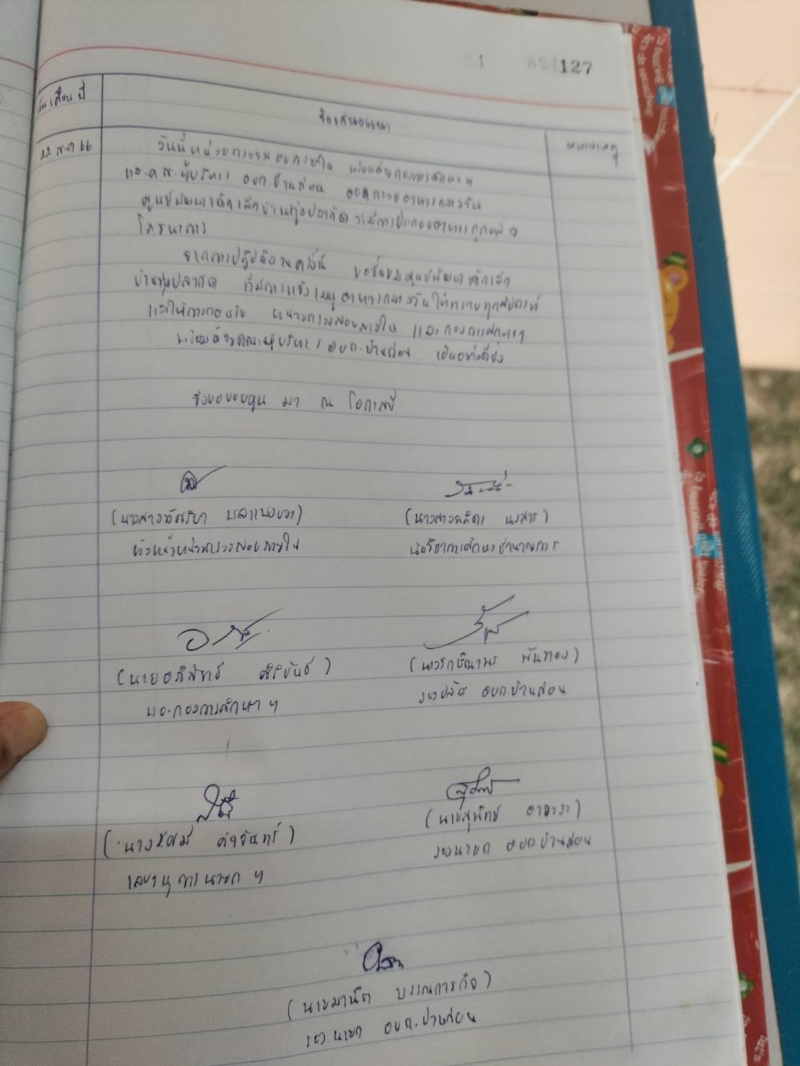 127
วัน เดือน ปี
ข้อเสนอแนะ
หมายเหตุ
22 ส.ค 66
วันนี้หน่วยตรวจสอบภายใน พร้อมด้วยกองการศึกษาฯ
และคณะผู้บริหาร อบต.บ้านส่อน ออกตรวจอาหารกลางวัน
ศูนย์พัฒนาเด็กเล็กบ้านทุ่งปลากัด ว่ามีการประกอบอาหารถูกหลัก
โภชนาการ
จากการปฏิบัติงานครั้งนี้ ขอชื่นชมศูนย์พัฒนาเด็กเล็ก
บ้านทุ่งปลากัด ที่มีการแจ้งเมนูอาหารกลางวันให้ทราบทุกสัปดาห์
และให้การต้อนรับ หน่วยตรวจสอบภายใน และกองการศึกษาฯ
พร้อมด้วยคณะผู้บริหาร อบต.บ้านส่อน เป็นอย่างยิ่ง
จึงขอขอบคุณ มา ณ โอกาสนี้
(นางสาว
(นางสาว
หัวหน้าหน่วยตรวจสอบภายใน
นักวิชาการศึกษาชำนาญการ
(นายอภิสิทธิ์
(
พันทอง)
ผอ.กองการศึกษา ฯ
รองปลัด อบต.บ้านส่อน
(นางรัศมี คำจันทร์)
(นาย
เลขานุการนายก ฯ
รองนายก อบต.บ้านส่อน
(นายมานิต
รองนายก อบต.บ้านส่อน